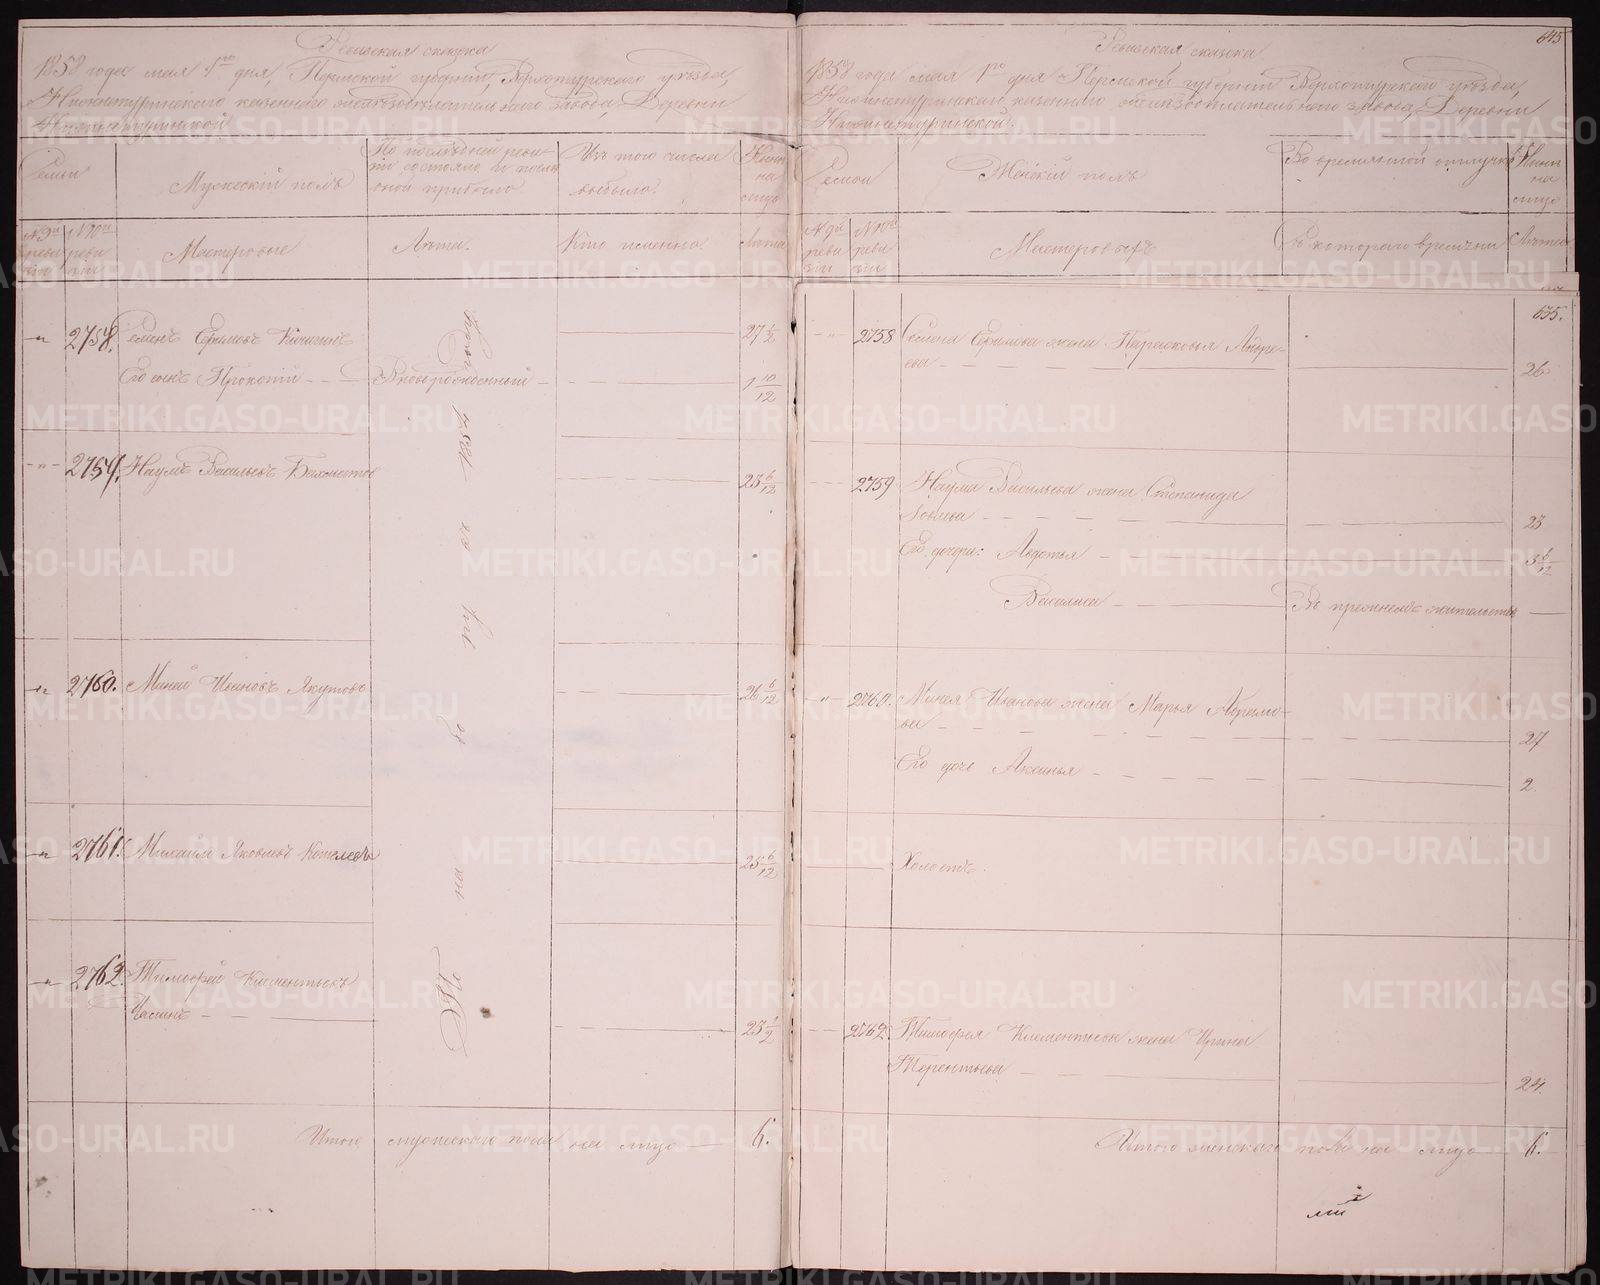 645
Ревизская сказка
1858 года мая 1го дня, Пермской губернии, Верхотурского уезда,
Нижнетуринского казенного железоделательного завода, Деревни
Нижнетуринской
Семьи
Мужеский полъ
По последней реви-
зіи состояло и после
оной прибыло.
Изъ того числа
выбыло.
Ныне
на
лицо
№ 9й
реви
зіи
№ 10й
реви
зіи
Мастеровые
Лѣта.
Кто именно.
Лѣта
2758. Семенъ Ефимовъ 27 1/2
Его сынъ Прокопій Вновьрожденный 1 10/12
2759. Наумъ Васильевъ Бахметов 25 6/12
2760. Миней Ивановъ Якутовъ 26 6/12
2761. Михаилъ Яковлевъ Кошелевъ 25 6/12
2762. Тимофей Клементьевъ
Часинъ 25 1/2
По на въ 1854 году
Итого мужескаго пола на лицо 6.
Ревизская сказка
1858 года мая 1го дня Пермской губерніи Верхотурскаго уезда,
Нижнетуринскаго казеннаго завода, Деревни
Нижнетуринской.
Семьи
Женскій полъ
Во временной отлучке
Ныне
на
лицо
№ 9й
реви
зіи
№ 10й
реви
зіи
Мастеровыхъ
Съ котораго времени
Лѣта
635.
2758 Семена Ефимова жена Парасковья Андре-
ева 26
2759 Наума Васильева жена Степанида
Іовлева 23
Его дочери: Авдотья 3 6/12
Василиса Въ прежнемъ жительстве
2760. Минея Иванова жена Марья Абрамо-
ва 27
Его дочь Аксинья 2.
Холостъ.
2762. Тимофея Клементьева жена Ирина
Терентьева 24.
Итого женскаго пола на лицо 6.
METRIKI.GASO-URAL.RU